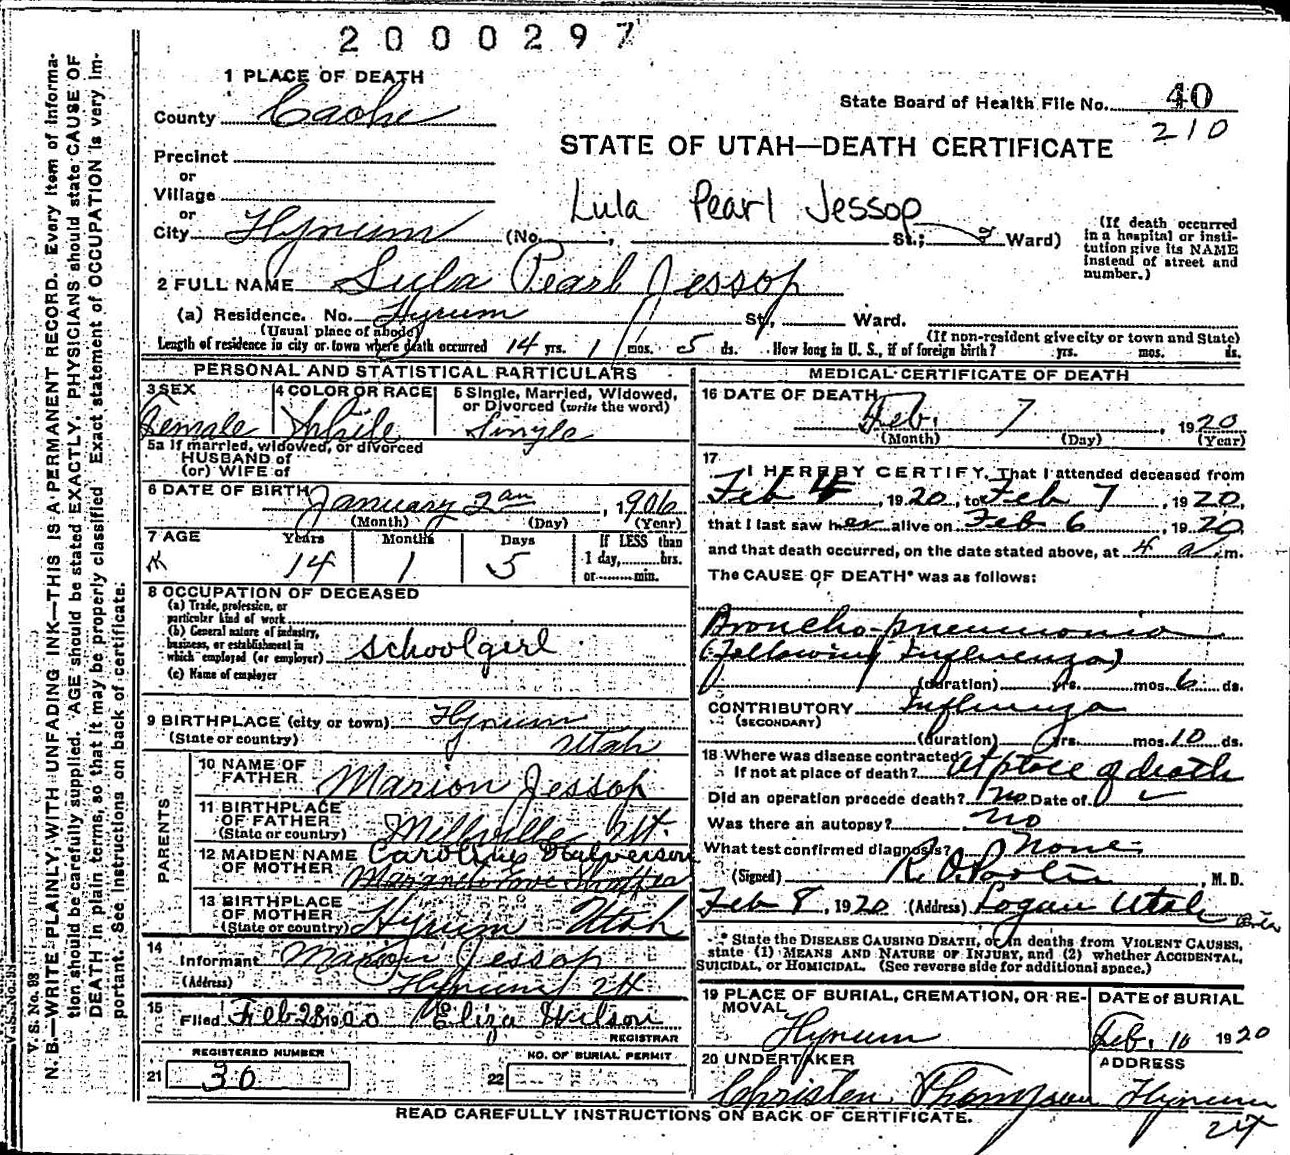 2000297
1 PLACE OF DEATH
County Cache
State Board of Health File No. 40
210
STATE OF UTAH—DEATH CERTIFICATE
Precinct
or
Village
or
City Hyrum
Lula Pearl Jessop
(No. , St.; Ward)
(If death occurred in a hospital or institution give its NAME instead of street and number.)
2 FULL NAME Lula Pearl Jessop
(a) Residence. No. Hyrum St., Ward.
(Usual place of abode) (If non-resident give city or town and State)
Length of residence in city or town where death occurred 14 yrs. 1 mos. 5 ds. How long in U. S., if of foreign birth? yrs. mos. ds.
PERSONAL AND STATISTICAL PARTICULARS
3 SEX Female
4 COLOR OR RACE White
5 Single, Married, Widowed, or Divorced (write the word) Single
5a If married, widowed, or divorced
HUSBAND of
(or) WIFE of
6 DATE OF BIRTH January 2 , 1906
(Month) (Day) (Year)
7 AGE Years 14 Months 1 Days 5
If LESS than 1 day, hrs. or min.
8 OCCUPATION OF DECEASED
(a) Trade, profession, or particular kind of work
(b) General nature of industry, business, or establishment in which employed (or employer) schoolgirl
(c) Name of employer
9 BIRTHPLACE (city or town) Hyrum
(State or country) Utah
PARENTS
10 NAME OF FATHER Marion Jessop
11 BIRTHPLACE OF FATHER (State or country) Millville Ut.
12 MAIDEN NAME OF MOTHER Caroline Halverson
13 BIRTHPLACE OF MOTHER (State or country) Hyrum Utah
14 Informant Marion Jessop
(Address) Hyrum Ut
15 Filed Feb 28 1920 Eliza Wilson
REGISTRAR
REGISTERED NUMBER
21 36
NO. OF BURIAL PERMIT
22
MEDICAL CERTIFICATE OF DEATH
16 DATE OF DEATH Feb. 7 , 1920
(Month) (Day) (Year)
17 I HEREBY CERTIFY, That I attended deceased from
Feb 4 , 1920, to Feb 7 , 1920,
that I last saw her alive on Feb 6 , 1920
and that death occurred, on the date stated above, at 4 a m.
The CAUSE OF DEATH* was as follows:
Broncho-pneumonia
(following Influenza)
(duration) yrs. mos. 6 ds.
CONTRIBUTORY Influenza
(SECONDARY)
(duration) yrs. mos. 10 ds.
18 Where was disease contracted
If not at place of death? At place of death
Did an operation precede death? no Date of
Was there an autopsy? no
What test confirmed diagnosis? None
(Signed) , M. D.
Feb 8, 1920 (Address) Logan Utah
* State the DISEASE CAUSING DEATH, or in deaths from VIOLENT CAUSES, state (1) MEANS AND NATURE OF INJURY, and (2) whether ACCIDENTAL, SUICIDAL, or HOMICIDAL. (See reverse side for additional space.)
19 PLACE OF BURIAL, CREMATION, OR REMOVAL Hyrum
DATE of BURIAL Feb. 10 1920
20 UNDERTAKER Christen Thompson
ADDRESS Hyrum Ut
READ CAREFULLY INSTRUCTIONS ON BACK OF CERTIFICATE.
V. S. No. 98
N. B.—WRITE PLAINLY, WITH UNFADING INK—THIS IS A PERMANENT RECORD. Every item of information should be carefully supplied. AGE should be stated EXACTLY. PHYSICIANS should state CAUSE OF DEATH in plain terms, so that it may be properly classified. Exact statement of OCCUPATION is very important. See Instructions on back of certificate.